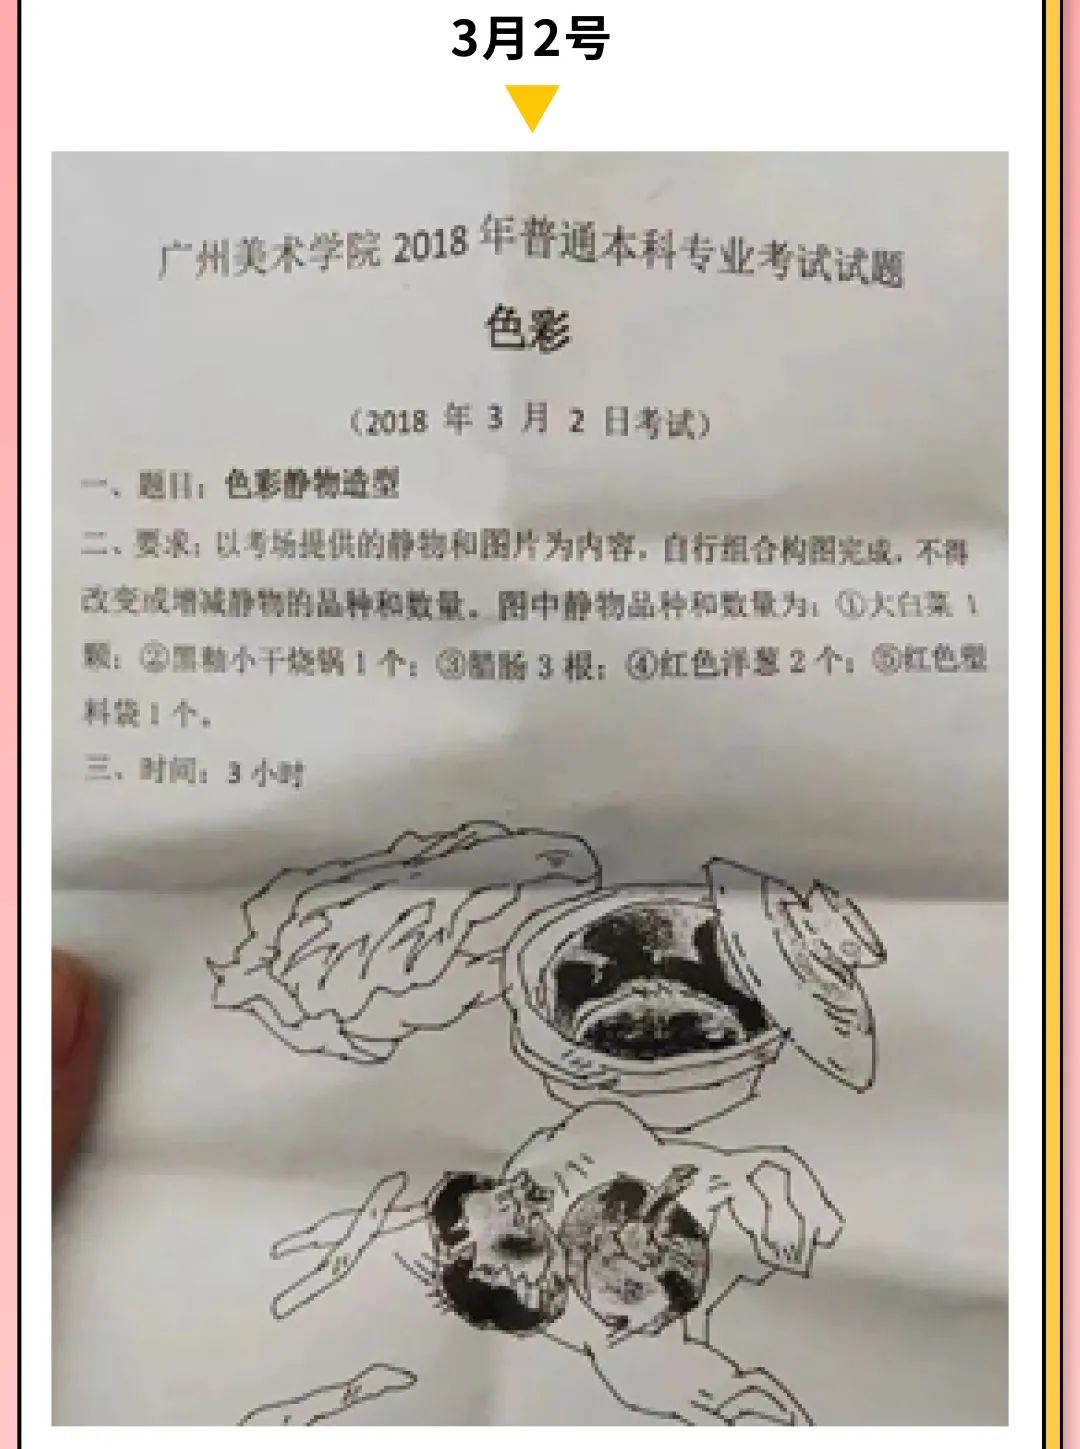 3月2号
广州美术学院 2018 年普通本科专业考试试题
色彩
（2018 年 3 月 2 日考试）
一、题目：色彩静物造型
二、要求：以考场提供的静物和图片为内容，自行组合构图完成，不得
改变或增减静物的品种和数量。图中静物品种和数量为：①大白菜 1
颗；②黑釉小干烧锅 1 个；③腊肠 3 根；④红色洋葱 2 个；⑤红色塑
料袋 1 个。
三、时间：3 小时